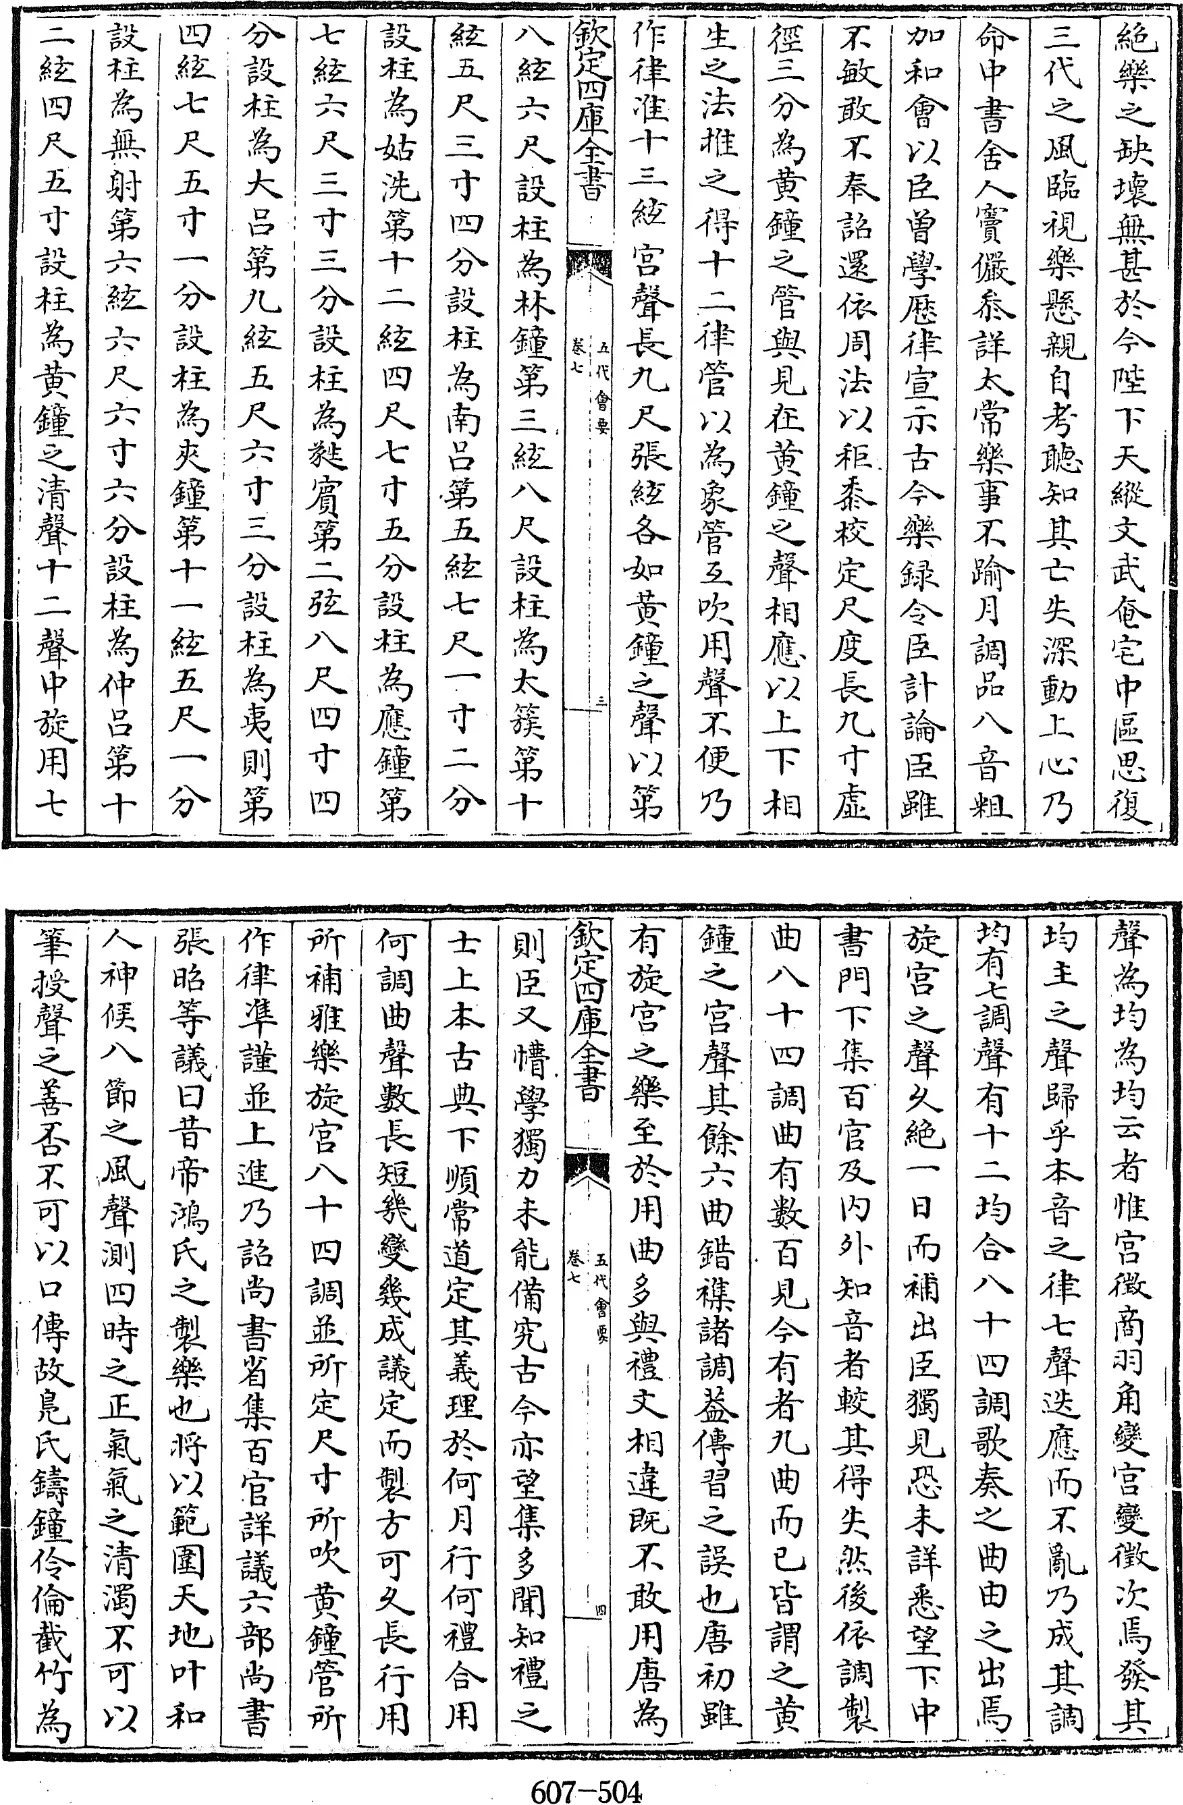 絶樂之缺壞無甚於今陛下天縱文武奄宅中區思復
三代之風臨視樂懸親自考聽知其亡失深動上心乃
命中書舍人竇儼叅詳太常樂事不踰月調品八音粗
加和會以臣曽學厯律宣示古今樂録令臣討論臣雖
不敏敢不奉詔遂依周法以秬黍校定尺度長九寸虛
徑三分為黄鐘之管與見在黄鐘之聲相應以上下相
生之法推之得十二律管以為衆管互吹用聲不便乃
作律准十三絃宮聲長九尺張絃各如黄鐘之聲以第
欽定四庫全書
五代會要
卷七
三
八絃六尺設柱為林鐘第三絃八尺設柱為太簇第十
絃五尺三寸四分設柱為南呂第五絃七尺一寸二分
設柱為姑洗第十二絃四尺七寸五分設柱為應鐘第
七絃六尺三寸三分設柱為蕤賓第二弦八尺四寸四
分設柱為大呂第九絃五尺六寸三分設柱為夷則第
四絃七尺五寸一分設柱為夾鐘第十一絃五尺一分
設柱為無射第六絃六尺六寸六分設柱為仲呂第十
二絃四尺五寸設柱為黄鐘之清聲十二聲中旋用七
聲為均為均云者惟宮徴商羽角變宮變徴次焉發其
均主之聲歸乎本音之律七聲迭應而不亂乃成其調
均有七調聲有十二均合八十四調歌奏之曲由之出焉
旋宮之聲乆絶一日而補出臣獨見恐未詳悉望下中
書門下集百官及内外知音者較其得失然後依調製
曲八十四調曲有數百見今有者九曲而已皆謂之黄
鐘之宮聲其餘六曲錯襍諸調葢傳習之誤也唐初雖
有旋宮之樂至於用曲多與禮文相違既不敢用唐為
欽定四庫全書
五代會要
卷七
四
則臣又懵學獨力未能備究古今亦望集多聞知禮之
士上本古典下順常道定其義理於何月行何禮合用
何調曲聲數長短幾變幾成議定而製方可乆長行用
所補雅樂旋宮八十四調並所定尺寸所吹黄鐘管所
作律凖謹並上進乃詔尚書省集百官詳議六部尚書
張昭等議曰昔帝鴻氏之製樂也將以範圍天地叶和
人神候八節之風聲測四時之正氣氣之清濁不可以
筆授聲之善否不可以口傳故鳬氏鑄鐘伶倫截竹為
607-504